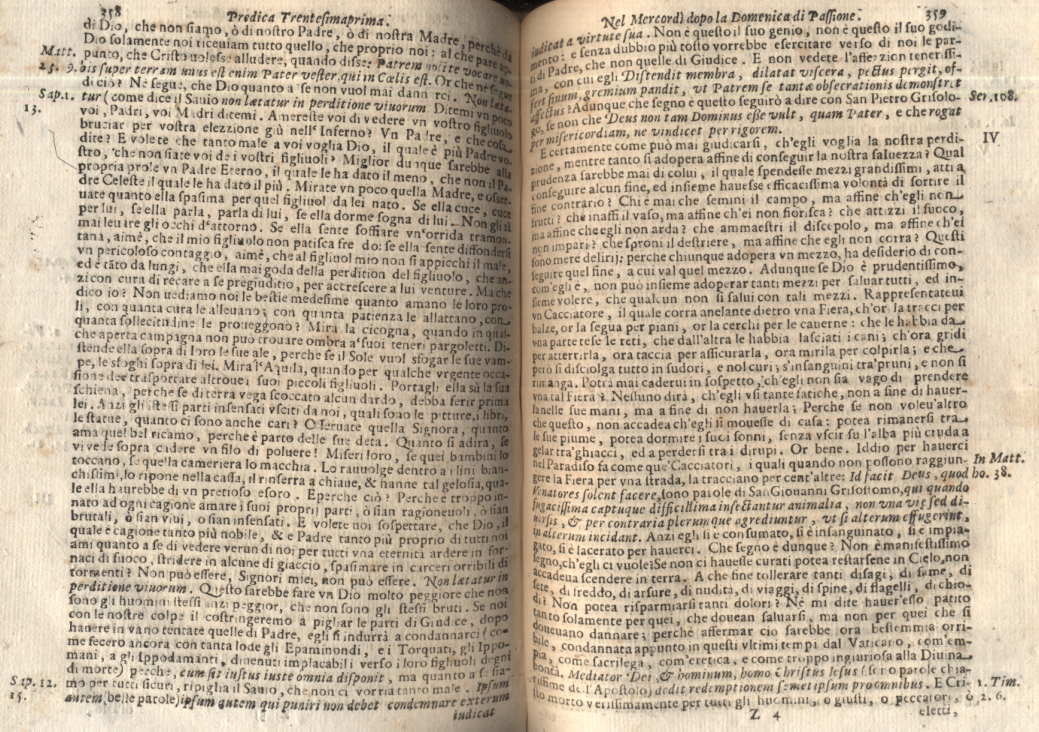 358 Predica Trentesimaprima.
di Dio, che non siamo, ò di nostro Padre, ò di nostra Madre, perche da
Dio solamente noi riceviam tutto quello, che proprio noi: al che pare
Matt. punto, che Cristo volesse alludere, quando disse: Patrem nolite vocare
25. 9. bis super terram unus est enim Pater vester, qui in Cœlis est. Or che ne segue
di ciò? Ne segue, che Dio quanto a se non vuol mai dannarci. Non læta-
Sap. 1. tur (come dice il Savio non lætatur in perditione vivorum. Ditemi vn poco
13. voi, Padri, voi Madri ditemi. Amereste voi di vedere vn vostro figliuolo
bruciar per vostra elezzione giù nell'Inferno? Vn Padre, e che cosa
dite? E volete che tanto male a voi voglia Dio, il quale è più Padre vo-
stro, che non siate voi de i vostri figliuoli? Miglior dunque sarebbe alla
propria prole vn Padre Eterno, il quale le ha dato il meno, che non il Pa-
dre Celeste il quale le ha dato il più. Mirate vn poco quella Madre, e osser-
uate quanto ella spasima per quel figliuol da lei nato. Se ella cuce, cuce
per lui, se ella parla, parla di lui, se ella dorme sogna di lui. Non gli sà
mai leuare gli occhi d'attorno. Se ella sente soffiare vn'orrida tramon-
tana, aimè, che il mio figliuolo non patisca freddo: se ella sente diffondersi
vn pericoloso contaggio, aimè, che al figliuol mio non si appicchi il male,
ed è tãto da lungi, che ella mai goda della perdition del figliuolo, che an-
zi con cura di recare a se pregiuditio, per accrescere a lui venture. Ma che
dico io? Non uediamo noi le bestie medesime quanto amano le loro pro-
li, con quanta cura le alleuano; con quanta patienza le allattano, con
quanta sollecitudine le proueggono? Mira la cicogna, quando in qual-
che aperta campagna non può trouare ombra a' suoi teneri pargoletti. Di-
stende ella sopra di loro le sue ale, perche se il Sole vuol sfogar le sue vam-
pe, le sfoghi sopra di lei. Mira l'Aquila, quando per qualche vrgente occa-
sione dee trasportare altroue i suoi piccoli figliuoli. Portagli ella sù la sua
schiena, perche se di terra vega scoccato alcun dardo, debba ferir prima
lei. Anzi gli istessi parti insensati vsciti da noi, quali sono le pitture, i libri,
le statue, quanto ci sono anche cari? Osseruate quella Signora, quanto
ama quel bel ricamo, perche è parto delle sue deta. Quanto si adira, se
vi vede sopra cadere vn filo di poluere! Miseri loro, se quei bambini lo
toccano, se quella cameriera lo macchia. Lo rauuolge dentro a i lini bian-
chissimi, lo ripone nella cassa, il rinserra a chiaue, & hanne tal gelosia, qua-
le ella haurebbe di vn pretioso esoro. E perche ciò? Perche è troppo in-
nato ad ogni cagione amare i suoi proprij parti, ò sian ragioneuoli, ò sian
brutali, ò sian viui, o sian insensati. E volete noi sospettare, che Dio, il
quale è cagione tanto più nobile, & e Padre tanto più proprio di tutti noi
ami quanto a se di vedere verun di noi per tutti vna eternità ardere in for-
naci di fuoco, stridere in alcune di giaccio, spasimare in carceri orribili di
tormenti? Non può essere, Signori miei, non può essere. Non lætatur in
perditione vivorum. Questo sarebbe fare vn Dio molto peggiore che non
sono gli huomini stessi anzi peggior, che non sono gli stessi bruti. Se noi
con le nostre colpe il costringeremo à pigliar le parti di Giudice, dopo
hauere in vano tentate quelle di Padre, egli si indurrà a condannarci (co-
me fecero ancora con tanta lode gli Epaminondi, e i Torquati, gli Ippo-
mani, a gli Ippodamanti, diuenuti implacabili verso i loro figliuoli degni
di morte) perche, cum sit iustus iuste omnia disponit, ma quanto a se sia-
Sap. 12. mo per tutti sicuri, ripiglia il Sauio, che non ci vorria tanto male. Ipsum
15. autem, (belle parole) ipsum autem qui puniri non debet condemnare exterum
indicat
Nel Mercordì dopo la Domenica di Passione. 359
iudicat a virtute sua. Non è questo il suo genio, non è questo il suo godi-
mento: e senza dubbio più tosto vorrebbe esercitare verso di noi le par-
ti di Padre, che non quelle di Giudice. E non vedete l'affezzion tenerissi-
ma, con cui egli Distendit membra, dilatat viscera, pectus pergit, of-
fert sinum, gremium pandit, vt Patrem se tantæ obsecrationis demonstret
affectus? Adunque che segno è questo seguirò a dire con San Pietro Grisolo- Ser. 108.
go, se non che Deus non tam Dominus esse vult, quam Pater, e che rogat
per misericordiam, ne vindicet per rigorem.
E certamente come può mai giudicarsi, ch'egli voglia la nostra perdi- IV
zione, mentre tanto si adopera affine di conseguir la nostra saluezza? Qual
prudenza sarebbe mai di colui, il quale spendesse mezzi grandissimi, atti a
conseguire alcun fine, ed insieme hauesse efficacissima volontà di sortire il
fine contrario? Chi è mai che semini il campo, ma affine ch'egli non
frutti? che inaffi il vaso, ma affine ch'ei non fiorisca? che attizzi il fuoco,
ma affine che egli non arda? che ammaestri il discepolo, ma affine ch'ei
non impari? che sproni il destriere, ma affine che egli non corra? Questi
sono mere deliri; perche chiunque adopera vn mezzo, ha desiderio di con-
seguire quel fine, a cui val quel mezzo. Adunque se Dio è prudentissimo,
com'egli è, non può insieme adoperar tanti mezzi per saluar tutti, ed in-
sieme volere, che qualcun non si salui con tali mezzi. Rappresentateui
vn Cacciatore, il quale corra anelante dietro vna Fiera, ch'or la tracci per
balze, or la segua per piani, or la cerchi per le cauerne: che le habbia da
vna parte tese le reti, che dall'altra le habbia lasciati i cani; ch'ora gridi
per atterrirla, ora taccia per assicurarla, ora mirila per colpirla; e che
però si disciolga tutto in sudori, e nol curi; s'insanguini tra' pruni, e non si
rimanga. Potrà mai caderui in sospetto, ch'egli non sia vago di prendere
vna tal Fiera? Nessuno dirà, ch'egli vsi tante fatiche, non a fine di hauer-
la nelle sue mani, ma a fine di non hauerla; Perche se non voleu'altro
che questo, non accadea ch'egli si mouesse di casa: potea rimanersi tra
le sue piume, potea dormire i suoi sonni, senza vscir su l'alba più cruda a
gelar tra' ghiacci, ed a perdersi tra i dirupi. Or bene. Iddio per hauerci
nel Paradiso fa come que' Cacciatori, i quali quando non possono raggiun- In Matt.
gere la Fiera per vna strada, la tracciano per cent'altre: Id facit Deus, quod ho. 38.
Venatores solent facere, sono parole di San Giouanni Grisostomo, qui quando
fugacissima captuque difficillima insectantur animalia, non vna vię sed di-
uersis, & per contraria plerumque agrediuntur, vt si alterum effugerint,
in alterum incidant. Anzi egli si è consumato, si è insanguinato, si è impia-
gato, si è lacerato per hauerci. Che segno è dunque? Non è manifestissimo
segno, ch'egli ci vuole? Se non ci hauesse curati potea restarsene in Cielo, non
accadeua scendere in terra. A che fine tollerare tanti disagi, di fame, di
sete, di freddo, di arsure, di nudità, di viaggi, di spine, di flagelli, di chio-
di? Non potea risparmiarsi tanti dolori? Ne mi dite hauer'esso patito
tanto solamente per quei, che douean saluarsi, ma non per quei che si
doueuano dannare; perche affermar cio sarebbe ora bestemmia orri-
bile, condannata appunto in questi vltimi tempi dal Vaticano, com'em-
pia, come sacrilega, com'eretica, e come troppo ingiuriosa alla Diuina
bontà. Mediator Dei, & hominum, homo Christus Iesus (sero parole chia-
rissime dell'Apostolo) dedit redemptionem semet ipsum pro omnibus. E Cri- 1. Tim.
sto morto verissimamente per tutti gli huomini, o giusti, o peccatori, ò 2. 6.
Z 4 eletti,